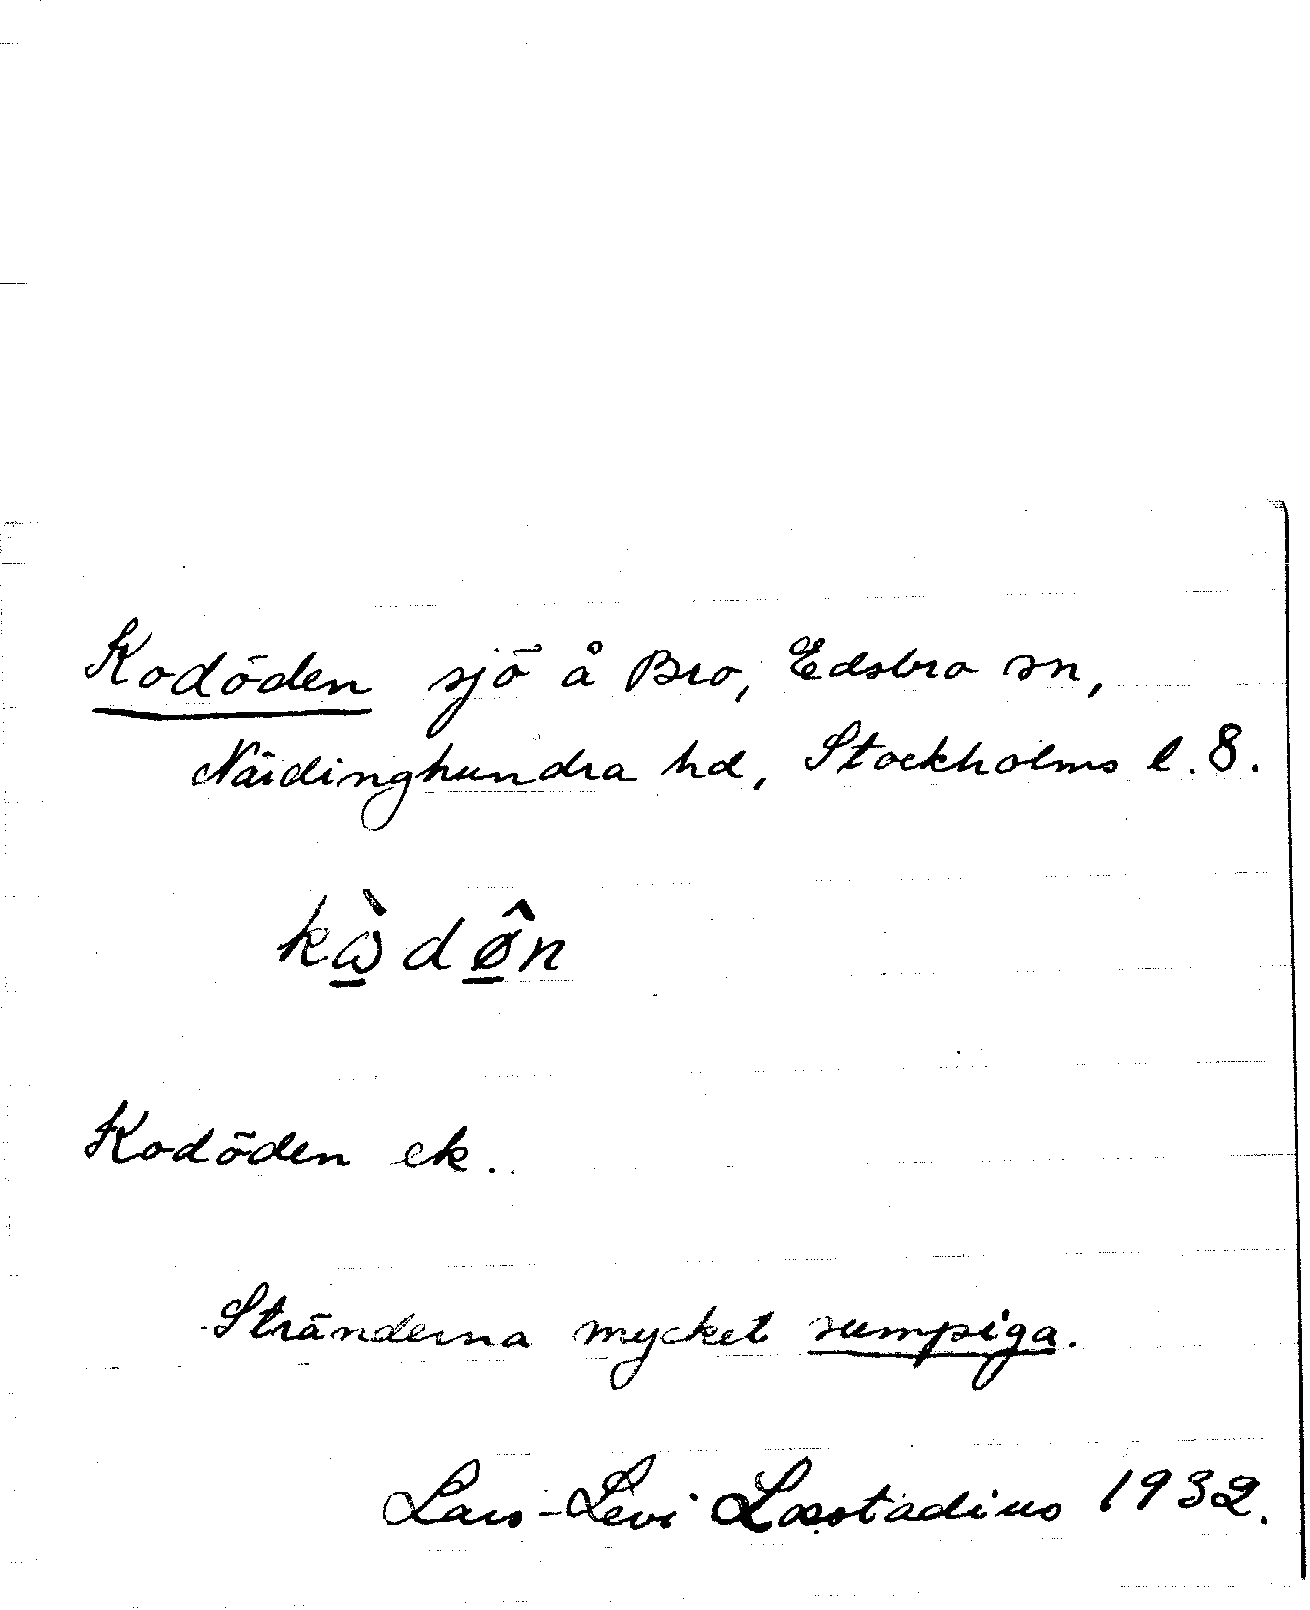 Kodöden sjö å Bro, Edsbro sn,
Närdinghundra hd, Stockholms l. 8.
kɷ̀dø̂n
Kodöden ek.
Stränderna mycket sumpiga.
Lars-Levi Læstadius 1932.